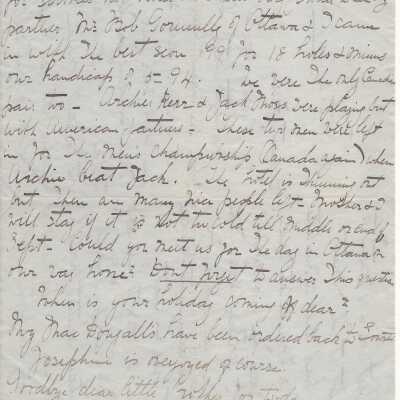 partner Mr Bob Gormully of Ottawa & I came
in with the best score 99 for 18 holes & minus
our handicap of 5 - 94. We were the only Canadian
pair too - Archie Kerr & Jack Moss were playing but
with American partners - These two men were left
in for the Men's Championship (Canada again) when
Archie beat Jack. The hotel is thinning out
but there are many nice people left - Mother & I
will stay if it is not too cold till middle or end of
Sept - Could you meet us for the day in Ottawa on
our way home? Don't forget to answer this question
When is your holiday coming off dear?
My Mac Dougall's have been ordered back to
Josephine is overjoyed of course
Goodbye dear little